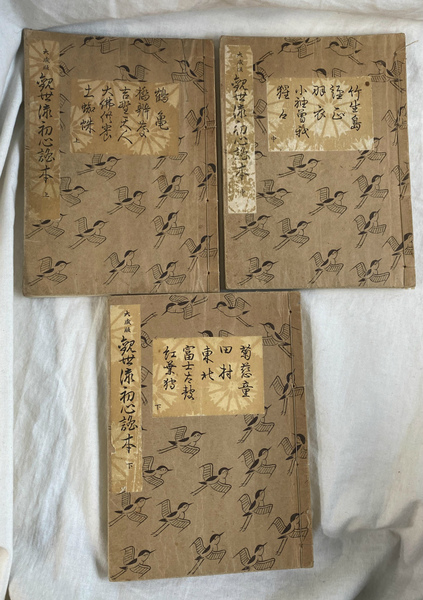 鶴亀
橋辨慶
吉野天人
大佛供養
土蜘蛛
上
大成版
觀世流初心謡本
上
竹生島
経正
羽衣
小袖曽我
猩々
中
大成版
觀世流初心謡本
菊慈童
田村
東北
富士太鼓
紅葉狩
下
大成版
觀世流初心謡本
下